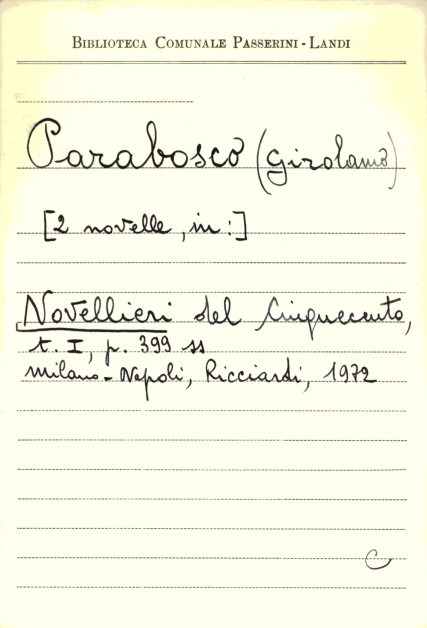 BIBLIOTECA COMUNALE PASSERINI - LANDI
Parabosco (Girolamo)
[2 novelle, in:]
Novellieri del Cinquecento,
t. I, p. 399 ss
Milano - Napoli, Ricciardi, 1972
C